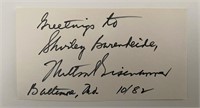 Greetings to
Shirley
Milton S. Eisenhower
Baltimore, Md. 10/82